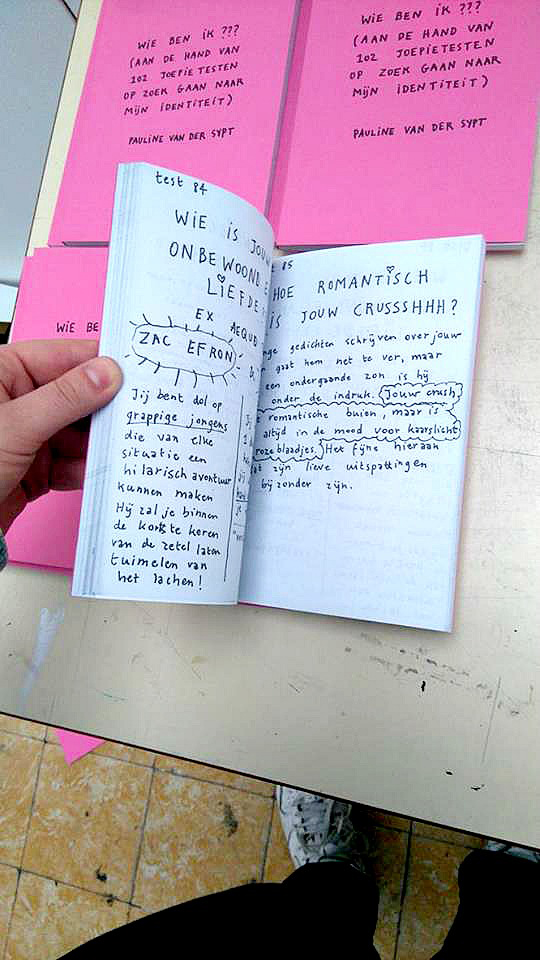 WIE BEN IK ???
(AAN DE HAND VAN
102 JOEPIETESTEN
OP ZOEK GAAN NAAR
MIJN IDENTITEIT)
PAULINE VAN DER SYPT
WIE BEN IK ???
(AAN DE HAND VAN
102 JOEPIETESTEN
OP ZOEK GAAN NAAR
MIJN IDENTITEIT)
PAULINE VAN DER SYPT
WIE BE
test 84
WIE IS JOUW
ONBEWOOND E
LIEFDE
EX AEQUO
ZAC EFRON
Jij bent dol op
grappige jongens
die van elke
situatie een
hilarisch avontuur
kunnen maken
Hij zal je binnen
de kortste keren
van de zetel laten
tuimelen van
het lachen!
85
HOE ROMANTISCH
IS JOUW CRUSSSHHH?
nge gedichten schrijven over jouw
gaat hem net te ver, maar
een ondergaande zon is hij
onder de indruk. Jouw crush
romantische buien, maar is
altijd in de mood voor kaarslicht
rozeblaadjes. Het fijne hieraan
at zijn lieve uitspattingen
bijzonder zijn.